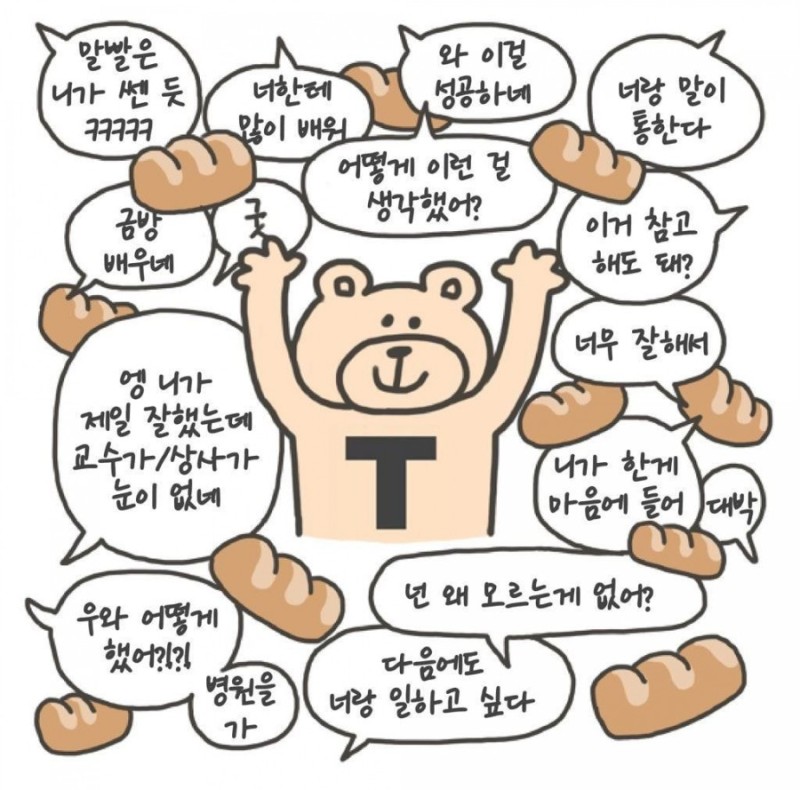 말빨은
니가 쎈 듯
ㅋㅋㅋㅋㅋ
너한테
많이 배워
와 이걸
성공하네
너랑 말이
통한다
어떻게 이런 걸
생각했어?
금방
배우네
굿
이거 참고
해도 돼?
너무 잘해서
엥 니가
제일 잘했는데
교수가/상사가
눈이 없네
T
니가 한게
마음에 들어
대박
넌 왜 모르는게 없어?
우와 어떻게
했어?!?!
병원을
가
다음에도
너랑 일하고 싶다